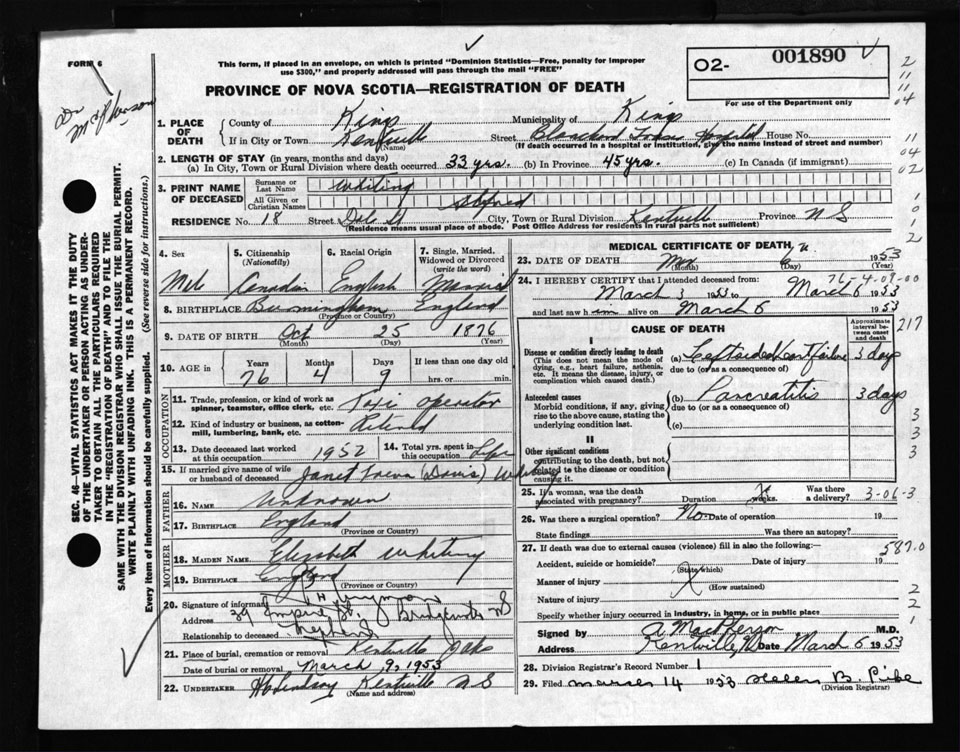 FORM 6
This form, if placed in an envelope, on which is printed "Dominion Statistics—Free, penalty for improper
use $300," and properly addressed will pass through the mail "FREE"
PROVINCE OF NOVA SCOTIA—REGISTRATION OF DEATH
O2- 001890
For use of the Department only
Dr McPherson
1. PLACE OF DEATH County of Kings Municipality of Kings
If in City or Town Kentville (Name) Street Blanchard Hospital House No.
(If death occurred in a hospital or institution, give the name instead of street and number)
2. LENGTH OF STAY (in years, months and days)
(a) In City, Town or Rural Division where death occurred 33 yrs. (b) In Province 45 yrs. (c) In Canada (if immigrant)
3. PRINT NAME OF DECEASED Surname or Last Name Whiting
All Given or Christian Names Alfred
RESIDENCE No. 18 Street City, Town or Rural Division Kentville Province N S
(Residence means usual place of abode. Post Office Address for residents in rural parts not sufficient)
4. SEX Male
5. Citizenship (Nationality) Canadian
6. Racial Origin English
7. Single, Married, Widowed or Divorced (write the word) Married
8. BIRTHPLACE Burmingham England
(Province or Country)
9. DATE OF BIRTH Oct 25 1876
(Month) (Day) (Year)
10. AGE in Years 76 Months 4 Days 9 If less than one day old hrs. or min.
OCCUPATION
11. Trade, profession, or kind of work as spinner, teamster, office clerk, etc. Taxi operator
12. Kind of industry or business, as cotton-mill, lumbering, bank, etc. Retired
13. Date deceased last worked at this occupation 1952
14. Total yrs. spent in this occupation Life
15. If married give name of wife or husband of deceased Janet (Davis) Whiting
FATHER
16. Name Unknown
17. BIRTHPLACE England
(Province or Country)
MOTHER
18. MAIDEN NAME Elizabeth Whiting
19. BIRTHPLACE England
(Province or Country)
20. Signature of informant
Address 39 Empire St. Bridgewater NS
Relationship to deceased Nephew
21. Place of burial, cremation or removal Kentville
Date of burial or removal March 9, 1953
22. UNDERTAKER Lindsay Kentville N S
(Name and address)
MEDICAL CERTIFICATE OF DEATH
23. DATE OF DEATH Mar 6 1953
(Month) (Day) (Year)
76-4-09-00
24. I HEREBY CERTIFY that I attended deceased from:
March 3 1953 to March 6 1953
and last saw him alive on March 6 1953
CAUSE OF DEATH
Approximate interval between onset and death
217
I
Disease or condition directly leading to death (a) Left sided heart failure 3 days
(This does not mean the mode of dying, e.g., heart failure, asthenia, etc. It means the disease, injury, or complication which caused death.)
due to (or as a consequence of)
Antecedent causes (b) Pancreatitis 3 days
Morbid conditions, if any, giving rise to the above cause, stating the underlying condition last.
due to (or as a consequence of)
(c)
II
Other significant conditions
contributing to the death, but not related to the disease or condition causing it.
25. If a woman, was the death associated with pregnancy? Duration weeks. Was there a delivery? 3-06-3
26. Was there a surgical operation? No Date of operation 19
State findings Was there an autopsy?
27. If death was due to external causes (violence) fill in also the following:—
587.0
Accident, suicide or homicide? (State which) Date of injury 19
Manner of injury (How sustained)
Nature of injury
Specify whether injury occurred in industry, in home, or in public place
Signed by A MacPherson M.D.
Address Kentville, Date March 6 1953
28. Division Registrar's Record Number 1
29. Filed March 14 1953 Helen B. Pike
(Division Registrar)
SEC. 46—VITAL STATISTICS ACT MAKES IT THE DUTY
OF THE UNDERTAKER OR PERSON ACTING AS UNDER-
TAKER TO OBTAIN ALL THE PARTICULARS REQUIRED
IN THE "REGISTRATION OF DEATH" AND TO FILE THE
SAME WITH THE DIVISION REGISTRAR WHO SHALL ISSUE THE BURIAL PERMIT.
WRITE PLAINLY WITH UNFADING INK. THIS IS A PERMANENT RECORD.
Every item of Information should be carefully supplied. (See reverse side for instructions.)